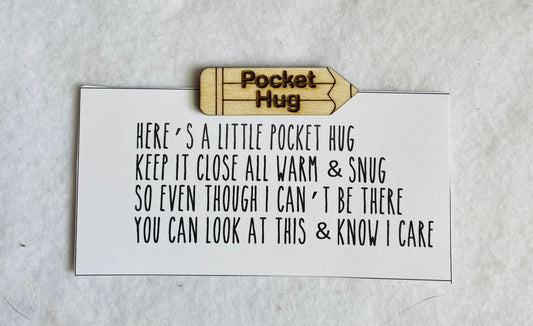 Pocket
Hug
HERE'S A LITTLE POCKET HUG
KEEP IT CLOSE ALL WARM & SNUG
SO EVEN THOUGH I CAN'T BE THERE
YOU CAN LOOK AT THIS & KNOW I CARE